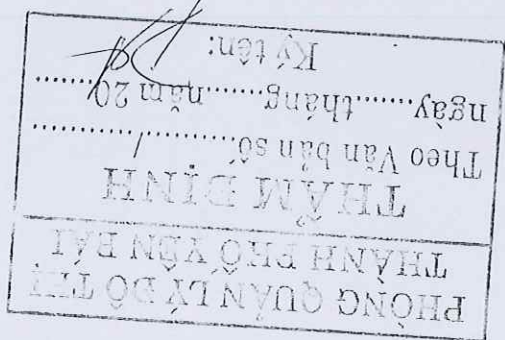 PHÒNG QUẢN LÝ ĐÔ THỊ
THÀNH PHỐ YÊN BÁI
THẨM ĐỊNH
Theo Văn bản số............/............
ngày.......tháng.......năm 20.......
Ký tên: